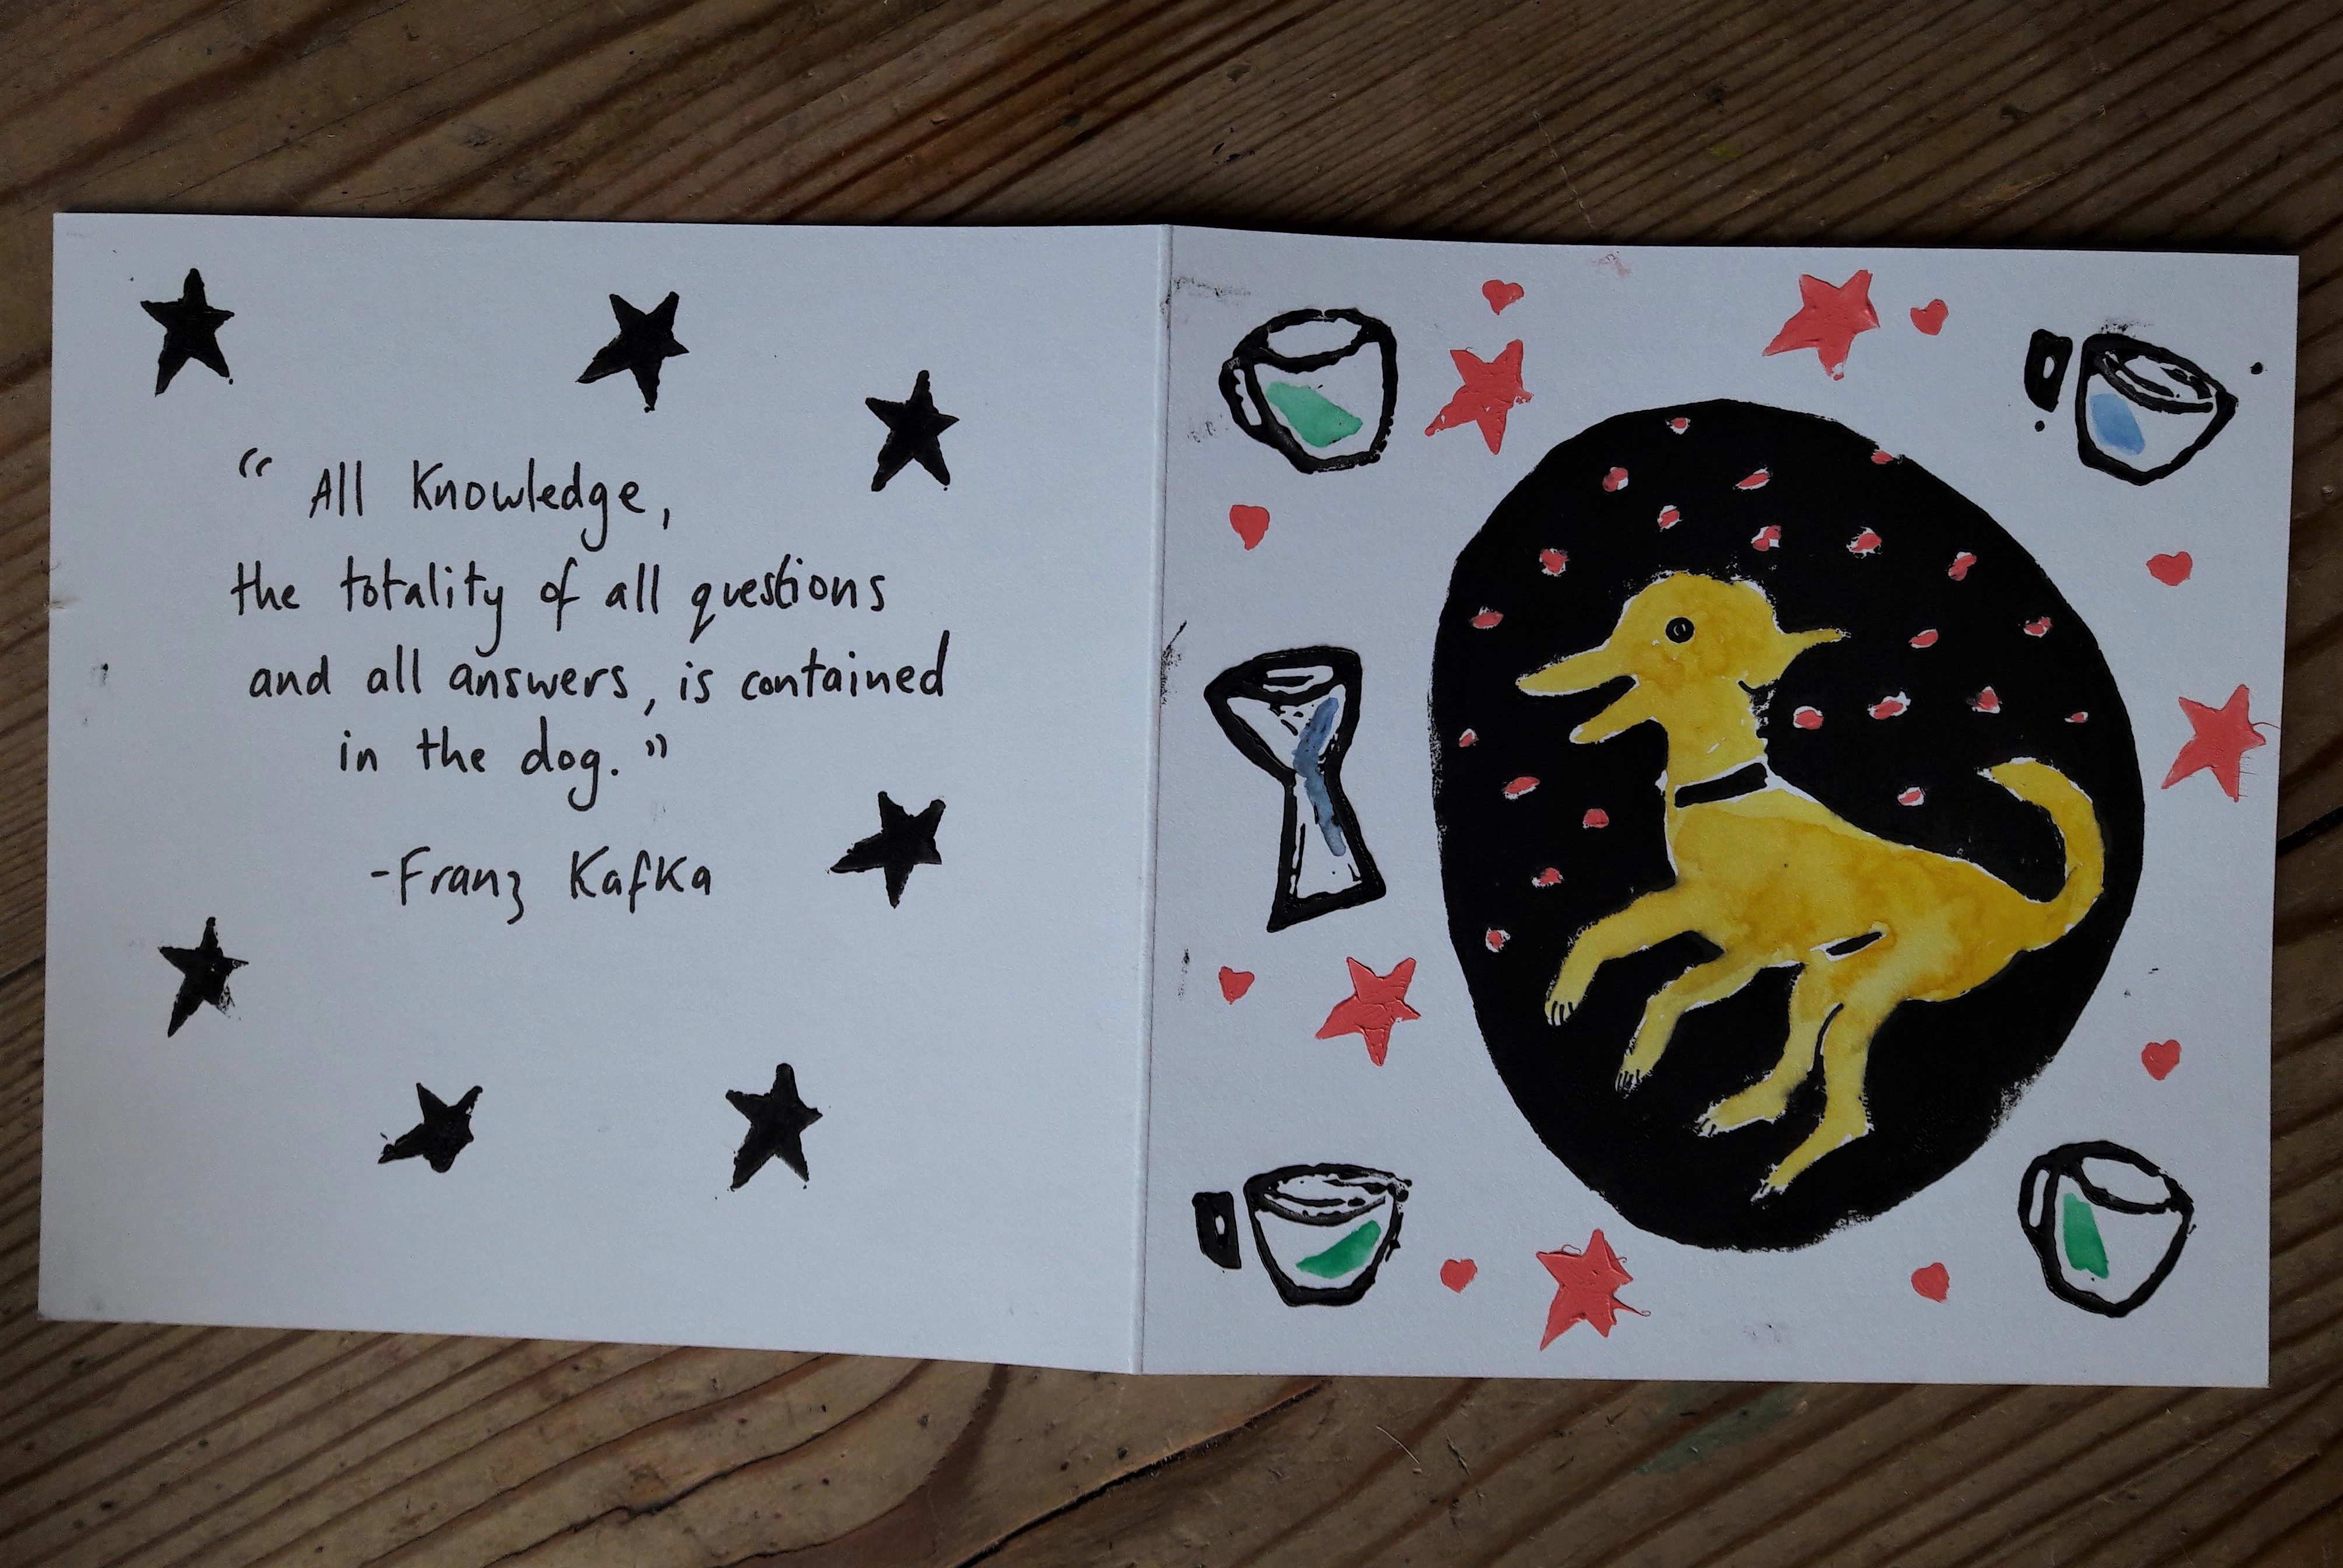 “ All Knowledge,
the totality of all questions
and all answers, is contained
in the dog. ”
-Franz Kafka